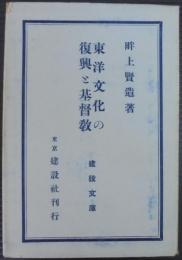 畔上賢造著
東洋文化の
復興と基督敎
建設文庫
東京 建設社刊行